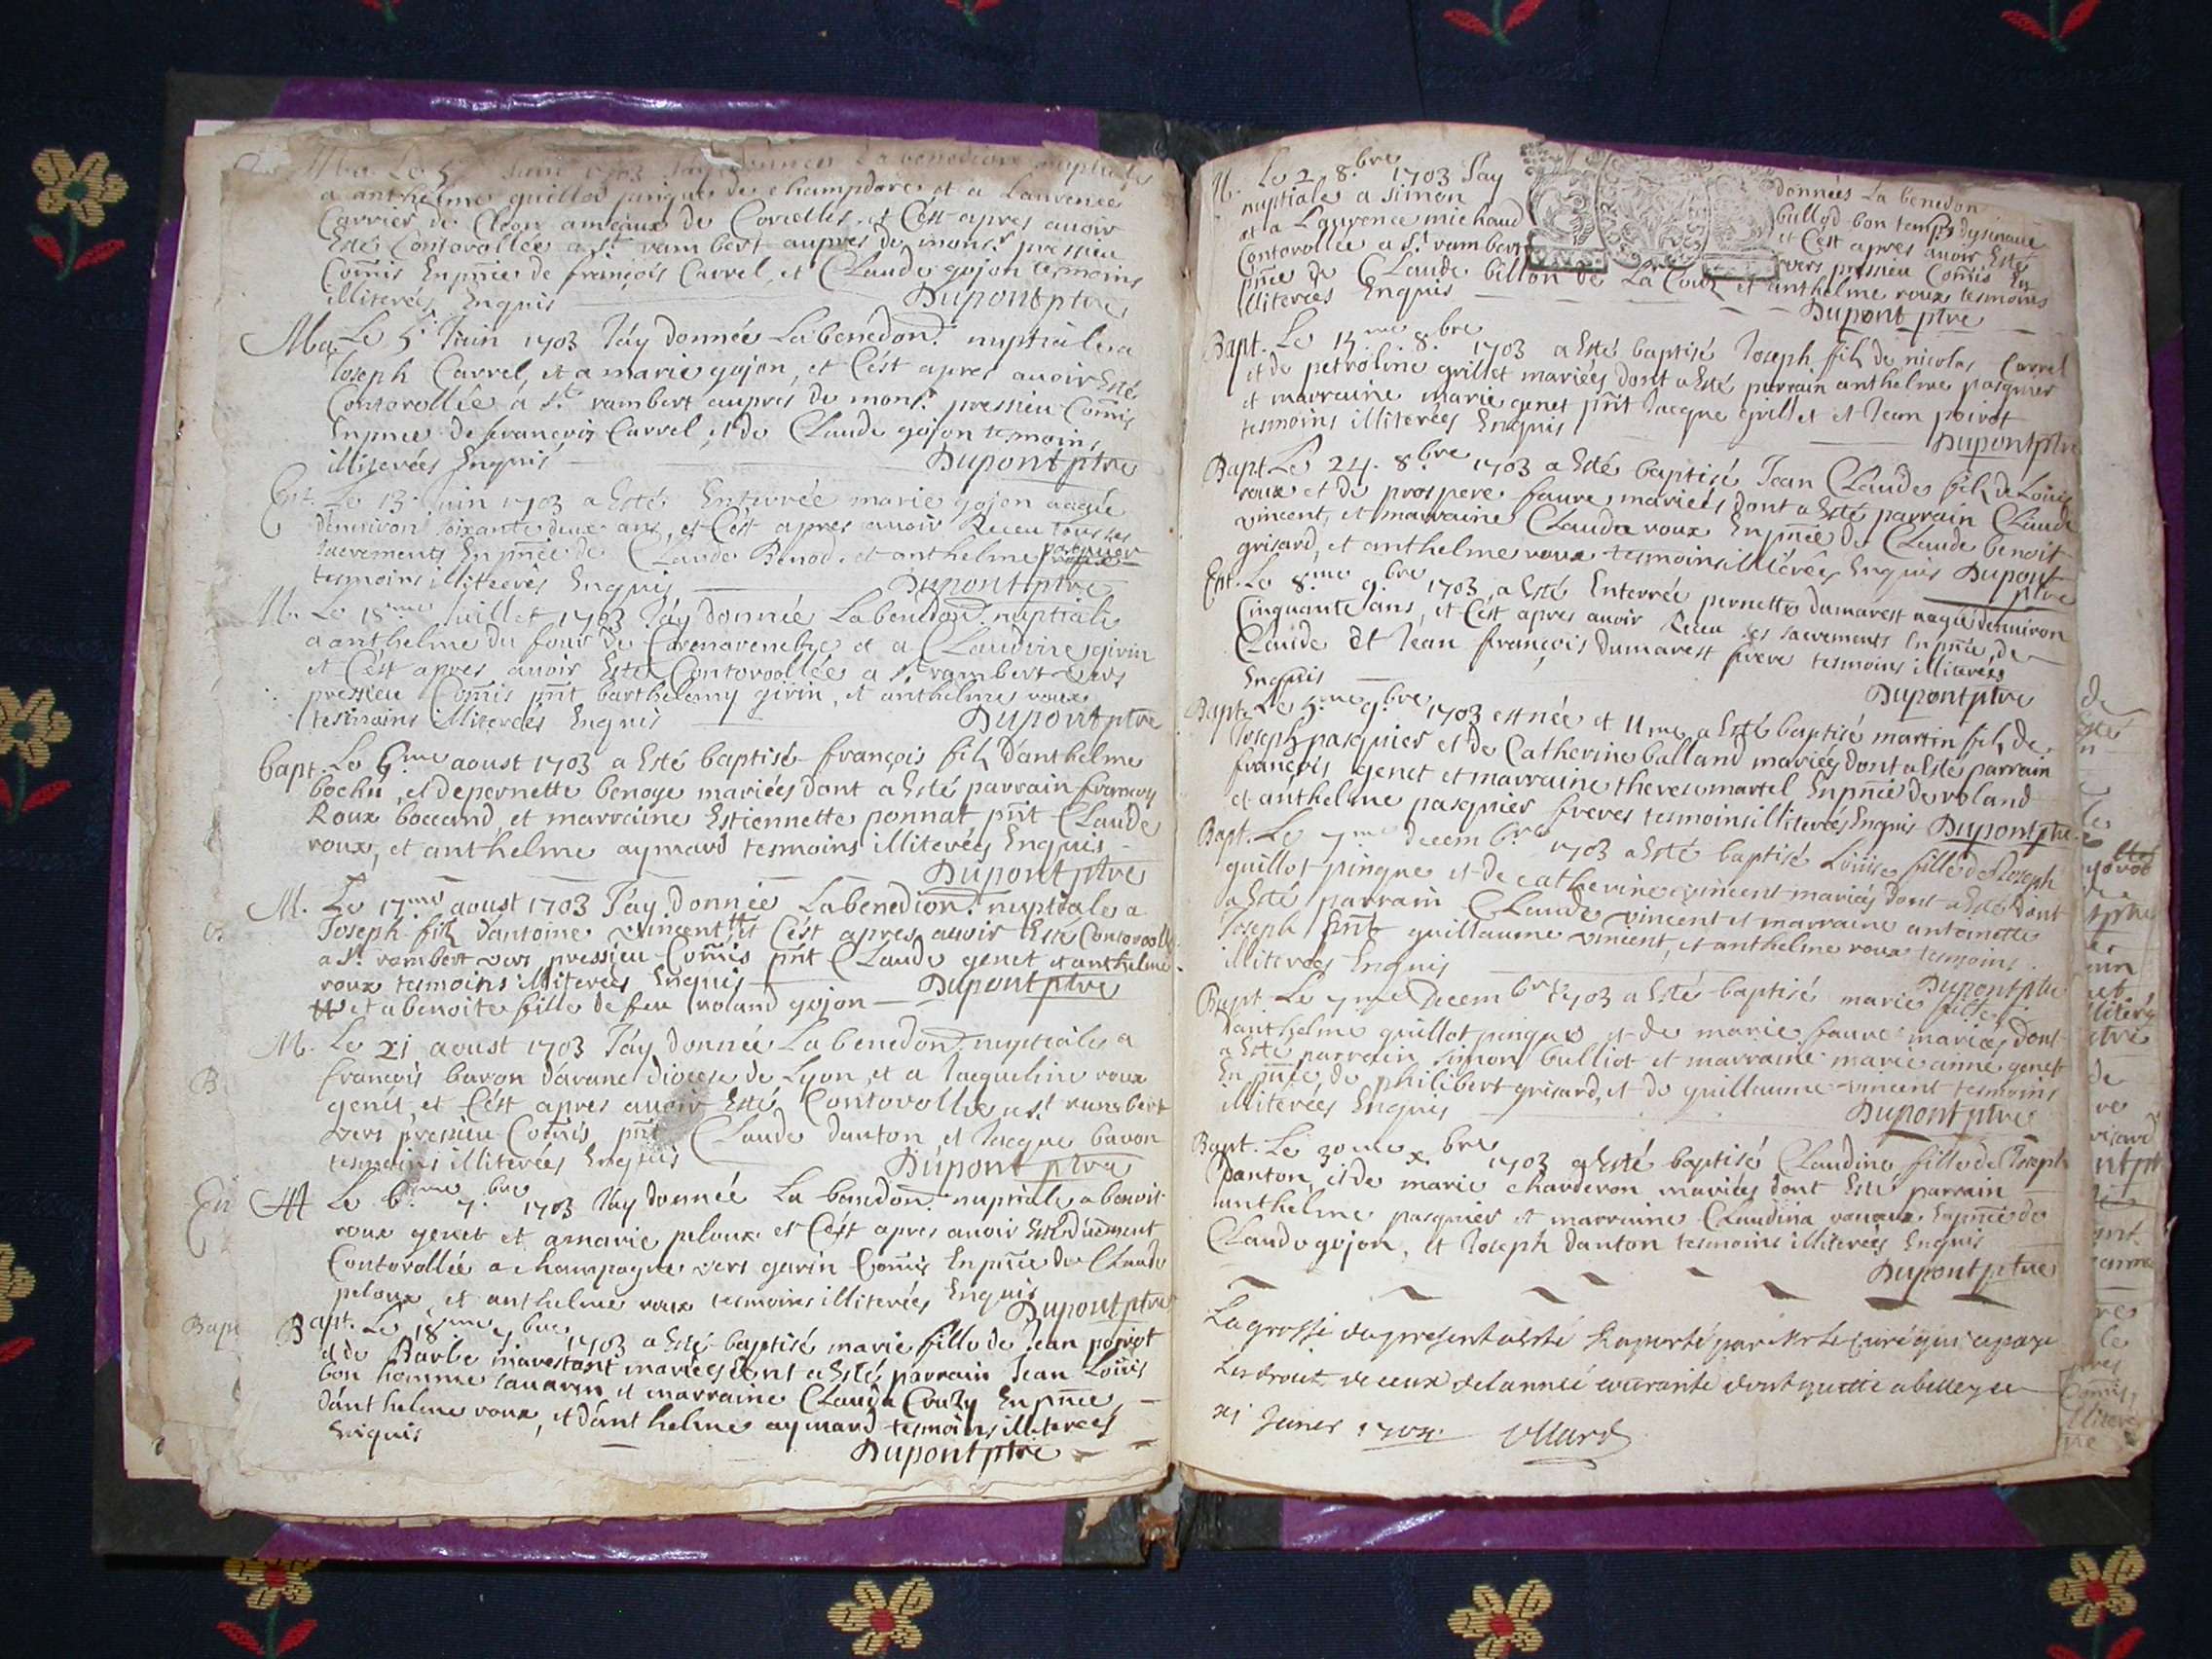 Ma. Le 5 Juin 1703 Jay donnée la benedion nuptiale
a anthelme guillod pingue de champdore et a Laurence
Carrier de Cleon ameaux de Corcelles, et C'est apres auoir
Esté Contorollée a St rambert aupres de monsr pressieu
Comis Enpnce de françois Carrel, et Claude gojon tesmoins
illiterés Enquis Dupont ptre
Ma. Le 5. Juin 1703 Jáy donnée La benedon. nuptiale a
Joseph Carrel, et a marie gojon, et C'ést apres auoir Esté
Contorollée a St. rambert aupres de monsr. pressieu Comis
Enpnce de françois Carrel, et de Claude gojon tesmoins
illiterées Enquis Dupont ptre
Ent. Le 13. Juin 1703 a Esté Enterrée marie gojon aagée
denuiron soixante deux ans, et C'ést apres auoir Receu tous les
sacrements Enpnce de Claude Benod, et anthelme pasquier
tesmoins illiterés Enquis Dupont ptre
M. Le 18.me Juillet 1703 Jáy donnée La benedon. nuptiale
a anthelme du four de et a Claudine girin
et C'est apres auoir Esté Contorollées a St rambert vers
pressieu Comis pnt barthelemy girin, et anthelme roux
tesmoins illiterées Enquis Dupont ptre
Bapt. Le 6.me aoust 1703 a Esté baptisé françois fils d'anthelme
bochu, et de pernette benoge mariées dont a Esté parrain françois
Roux boccand, et marraine Estiennette ponnat pnt Claude
roux, et anthelme aymard tesmoins illiterées Enquis
Dupont ptre
M. Le 17me aoust 1703 Jáy donnée La benedion. nuptiale a
Joseph fils d'antoine vincent # et C'ést apres auoir Esté Contoroollé
a St. rambert vers pressieu Comis pnt Claude genet et anthelme
roux tesmoins illiterées Enquis Dupont ptre
# et a benoite fille de feu roland gojon
M. Le 21 aoust 1703 Jáy donnée La benedon. nuptiale a
françois baron d'arane diocese de Lyon, et a Jacqueline roux
genet, et C'ést apres auoir Esté Contorollée a St rambert
vers pressieu Comis pnt Claude danton, et Jacque baron
tesmoins illiterées Enquis Dupont ptre
M Le 6.me 7.bre 1703 Jáy donnée La benedon. nuptiale a benoit
roux genet et a marie peloux et C'ést apres auoir Esté duëment
Contorollée a champagne vers garin Comis Enpnce de Claude
peloux, et anthelme roux tesmoins illiterées Enquis
Dupont ptre
Bapt. Le 18me 7bre 1703 a Esté baptisé marie fille de Jean poirot
et de Barbe mariées dont a Esté parrain Jean Loüis
bon homme sauarin et marraine Clauda Cruzy Enpnce
d'anthelme roux, et d'anthelme aymard tesmoins illiterées
Enquis
Dupont ptre
M. Le 2. 8.bre 1703 Jay données La benedon
nuptiale a simon bulliod bon temps
et a Laurence michaud et C'est apres auoir Esté
Contorollée a St. rambert vers pressieu Comis En
pnce de Claude billon de La Cour et anthelme roux tesmoins
illiterées Enquis Dupont ptre
Bapt. Le 15.me 8.bre 1703 a Esté baptisé Joseph fils de nicolas Carrel
et de petroline grillet mariées dont a Esté parrain anthelme pasquier
et marraine marie genet pnt Jacque grillet et Jean poirot
tesmoins illiterées Enquis
Dupont ptre
Bapt. Le 24. 8.bre 1703 a Esté baptisé Jean Claude fils de Loüis
roux et de prospere faure mariées dont a Esté parrain Claude
vincent, et marraine Clauda roux Enpnce de Claude benoit
grisard, et anthelme roux tesmoins illiterées Enquis Dupont
ptre
Ent. Le 8.me 9.bre 1703, a Esté Enterrée pernette dumarest aagée denuiron
Cinquante ans, et C'est apres auoir Receu ses sacrements Enpnce de
Claude et Jean françois dumarest frere tesmoins illiterées
Enquis Dupont ptre
Bapt. Le 5.me 9.bre 1703 est née et 11me a Esté baptisé martin fils de
Joseph pasquier et de Catherine balland mariées dont a Esté parrain
françois genet et marraine therese martel Enpnce de roland
et anthelme pasquier freres tesmoins illiterées Enquis Dupont ptre
Bapt. Le 7me decembre 1703 a Esté baptisé Loüise fille de Joseph
guillot pingue et de catherine vincent mariées dont a Esté dont
a Esté parrain Claude vincent et marraine antoinette
Joseph pnt guillaume vincent, et anthelme roux tesmoins
illiterées Enquis Dupont ptre
Bapt. Le 7me Decembre 1703 a Esté baptisé marie fille
d'anthelme guillot pingue et de marie faure mariées dont
a Esté parrain simon bulliot et marraine marie anne genet
En pnce de philibert grisard, et de guillaume vincent tesmoins
illiterées Enquis
Dupont ptre
Bapt. Le 30me x.bre 1703 a Esté baptisé Claudine fille de Joseph
Danton, et de marie charderon mariées dont Esté parrain
anthelme pasquier et marraine Claudina Enpnce de
Claude gojon, et Joseph danton tesmoins illiterées Enquis
Dupont ptre
La grosse du present a esté Raporté par Mr Le Curé qui a paye
Les droits de ceux de lannée courante dont quitte a belley ce
xi Janier 1704